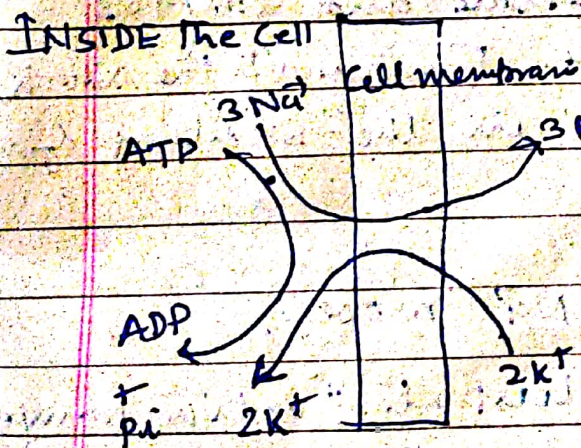 INSIDE The Cell
Cell membrane
3Na⁺
3
ATP
ADP
+
pi
2K⁺
2K⁺